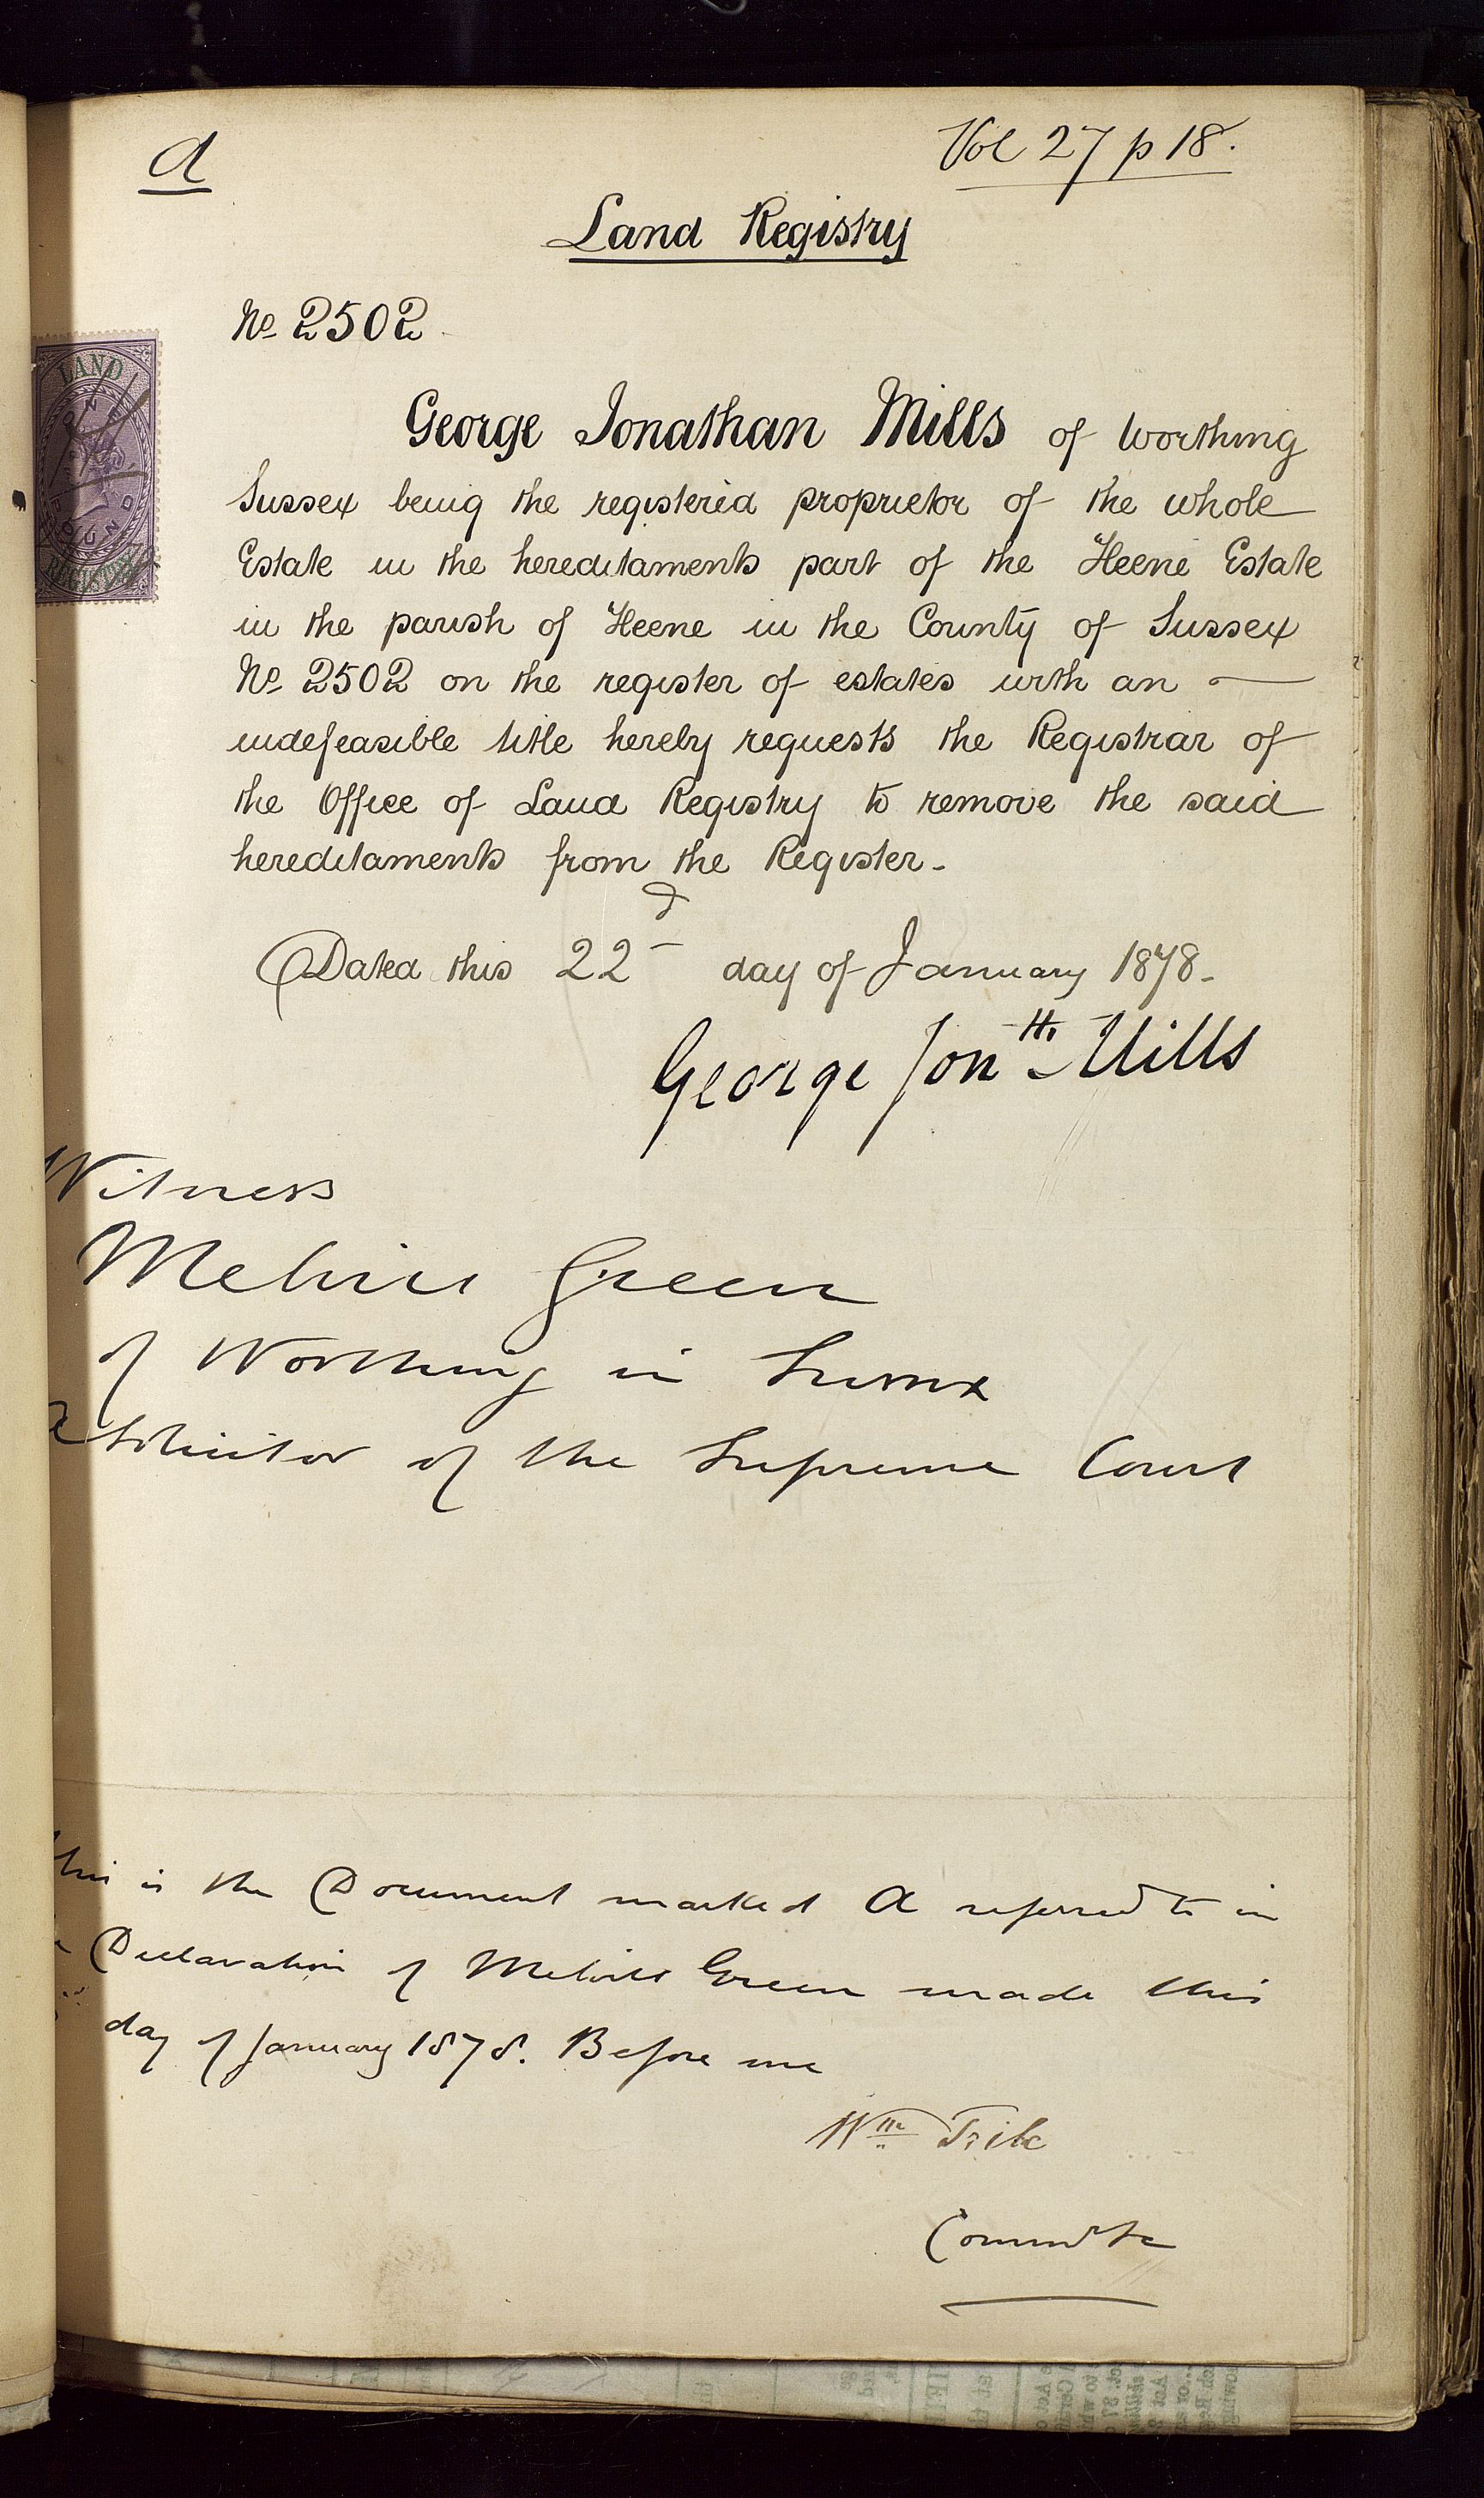 A
Vol 27 p 18.
Land Registry
No 2502
LAND
ONE
POUND
REGISTRY
George Jonathan Mills of Worthing
Sussex being the registered proprietor of the whole
Estate in the hereditaments part of the Heene Estate
in the parish of Heene in the County of Sussex
No 2502 on the register of estates with an
indefeasible title hereby requests the Registrar of
the Office of Land Registry to remove the said
hereditaments from the Register.
Dated this 22d day of January 1878.
George Jonth Mills
Witness
Melvill Green
of Worthing in Sussex
a Solicitor of the Supreme Court
This is the Document marked A referred to in
Declaration of Melvill Green made this
day of January 1878. Before me
Wm Tribe